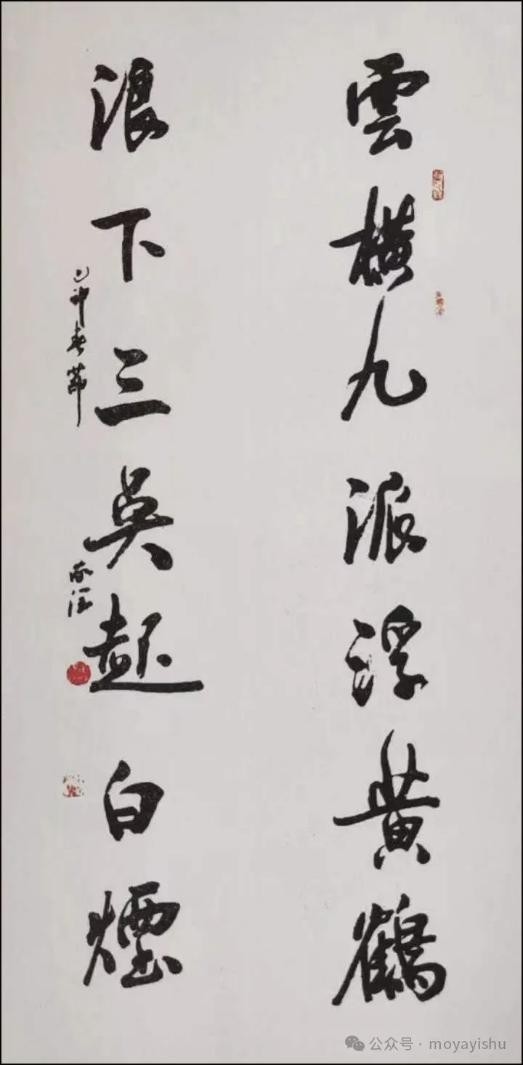 雲橫九派浮黃鶴
浪下三吳起白煙
乙卯春節
公众号 · moyayishu